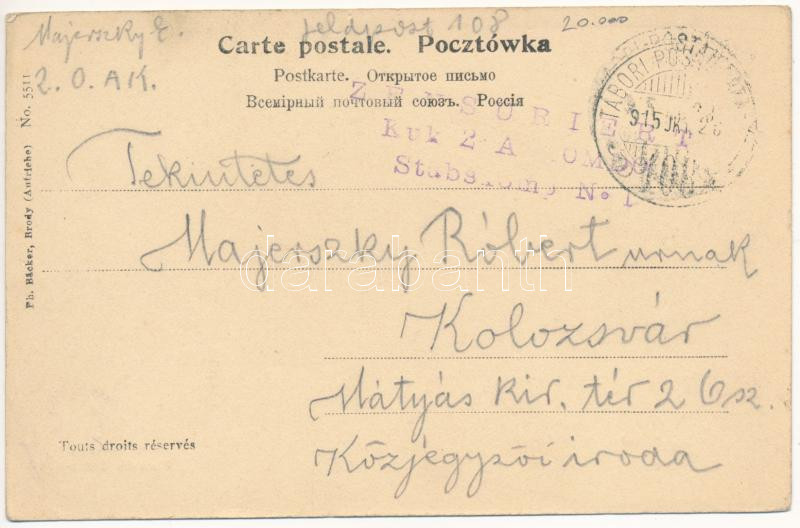 Majerszky E.
2. O. A K.
feldpost 108
20.000
Carte postale. Pocztówka
Postkarte. Открытое письмо
Всемірный почтовый союзъ. Россія
ZENSURIERT
Kuk 2 A KOMDO
Stabskomp N. 1
TÁBORI POSTA
915 JK
108
Tekintetes
Majerszky Róbert urnak
Kolozsvár
Mátyás kir. tér 26 sz.
Közjegyzői iroda
Touts droits réservés
Ph. Bäcker, Brody (Autriche) No. 5511
darabanth